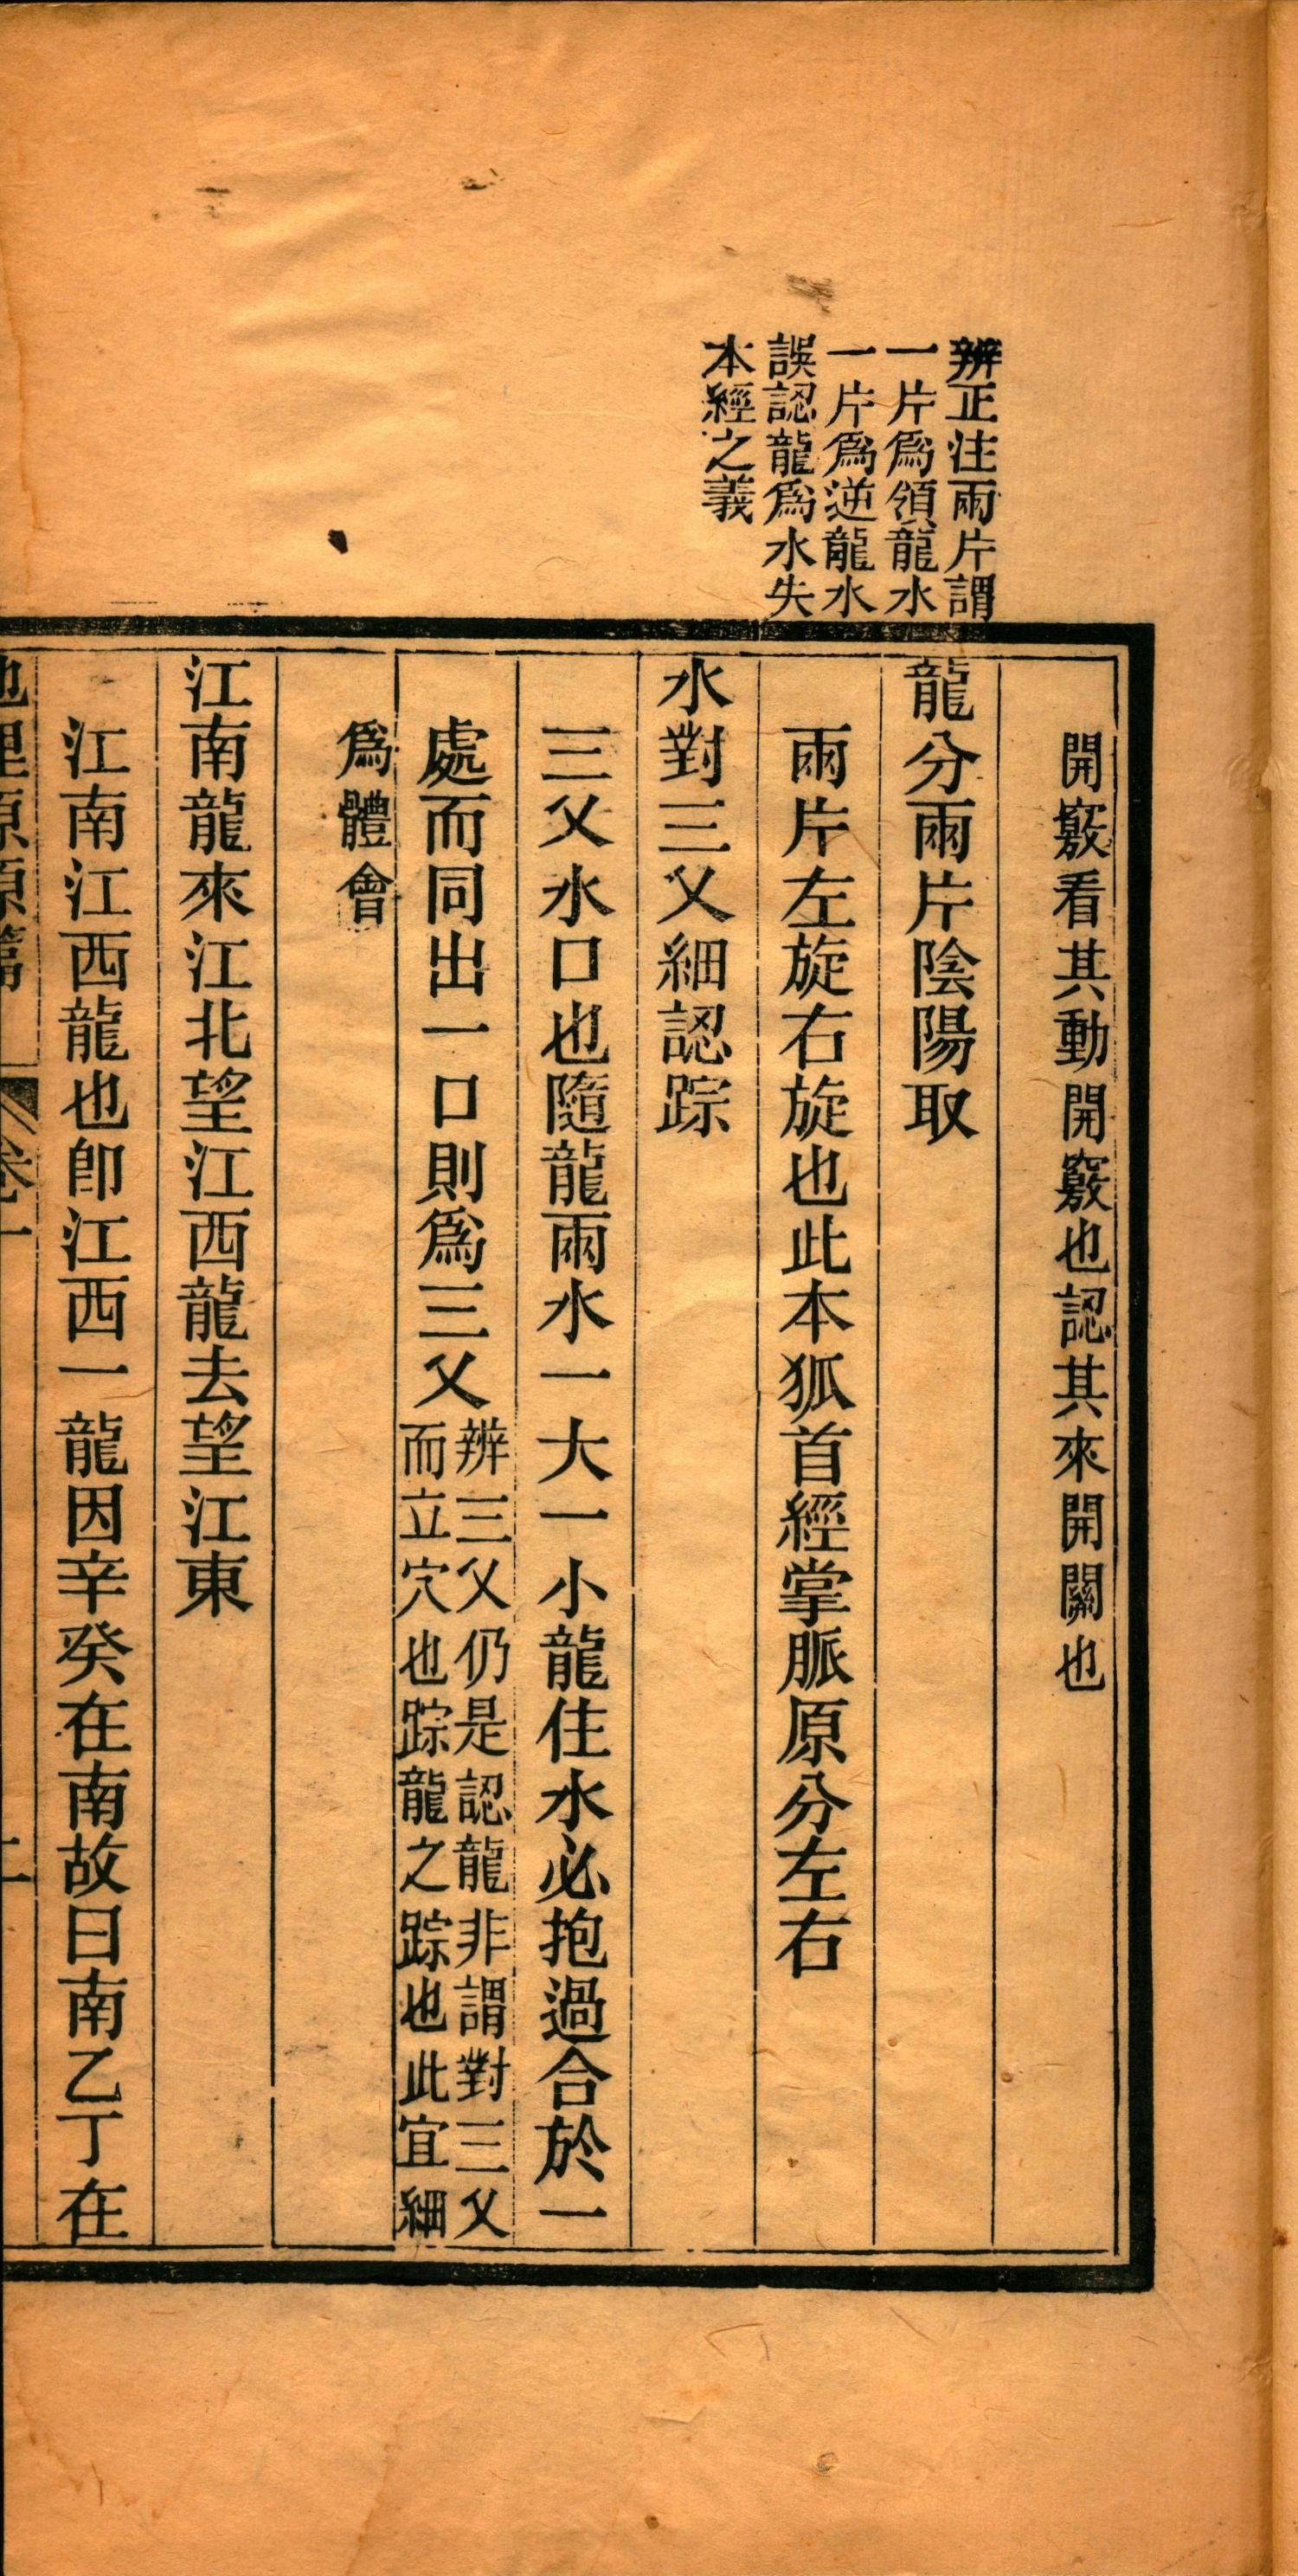 辨正注兩片謂
一片爲領龍水
一片爲逆龍水
誤認龍爲水失
本經之義
開竅看其動開竅也認其來開關也
龍分兩片陰陽取
兩片左旋右旋也此本狐首經掌脈原分左右
水對三叉細認踪
三叉水口也隨龍兩水一大一小龍住水必抱過合於一
處而同出一口則爲三叉
辨三叉仍是認龍非謂對三叉
而立穴也踪龍之踪也此宜細
爲體會
江南龍來江北望江西龍去望江東
江南江西龍也卽江西一龍因辛癸在南故曰南乙丁在
地理原原篇 卷一 二